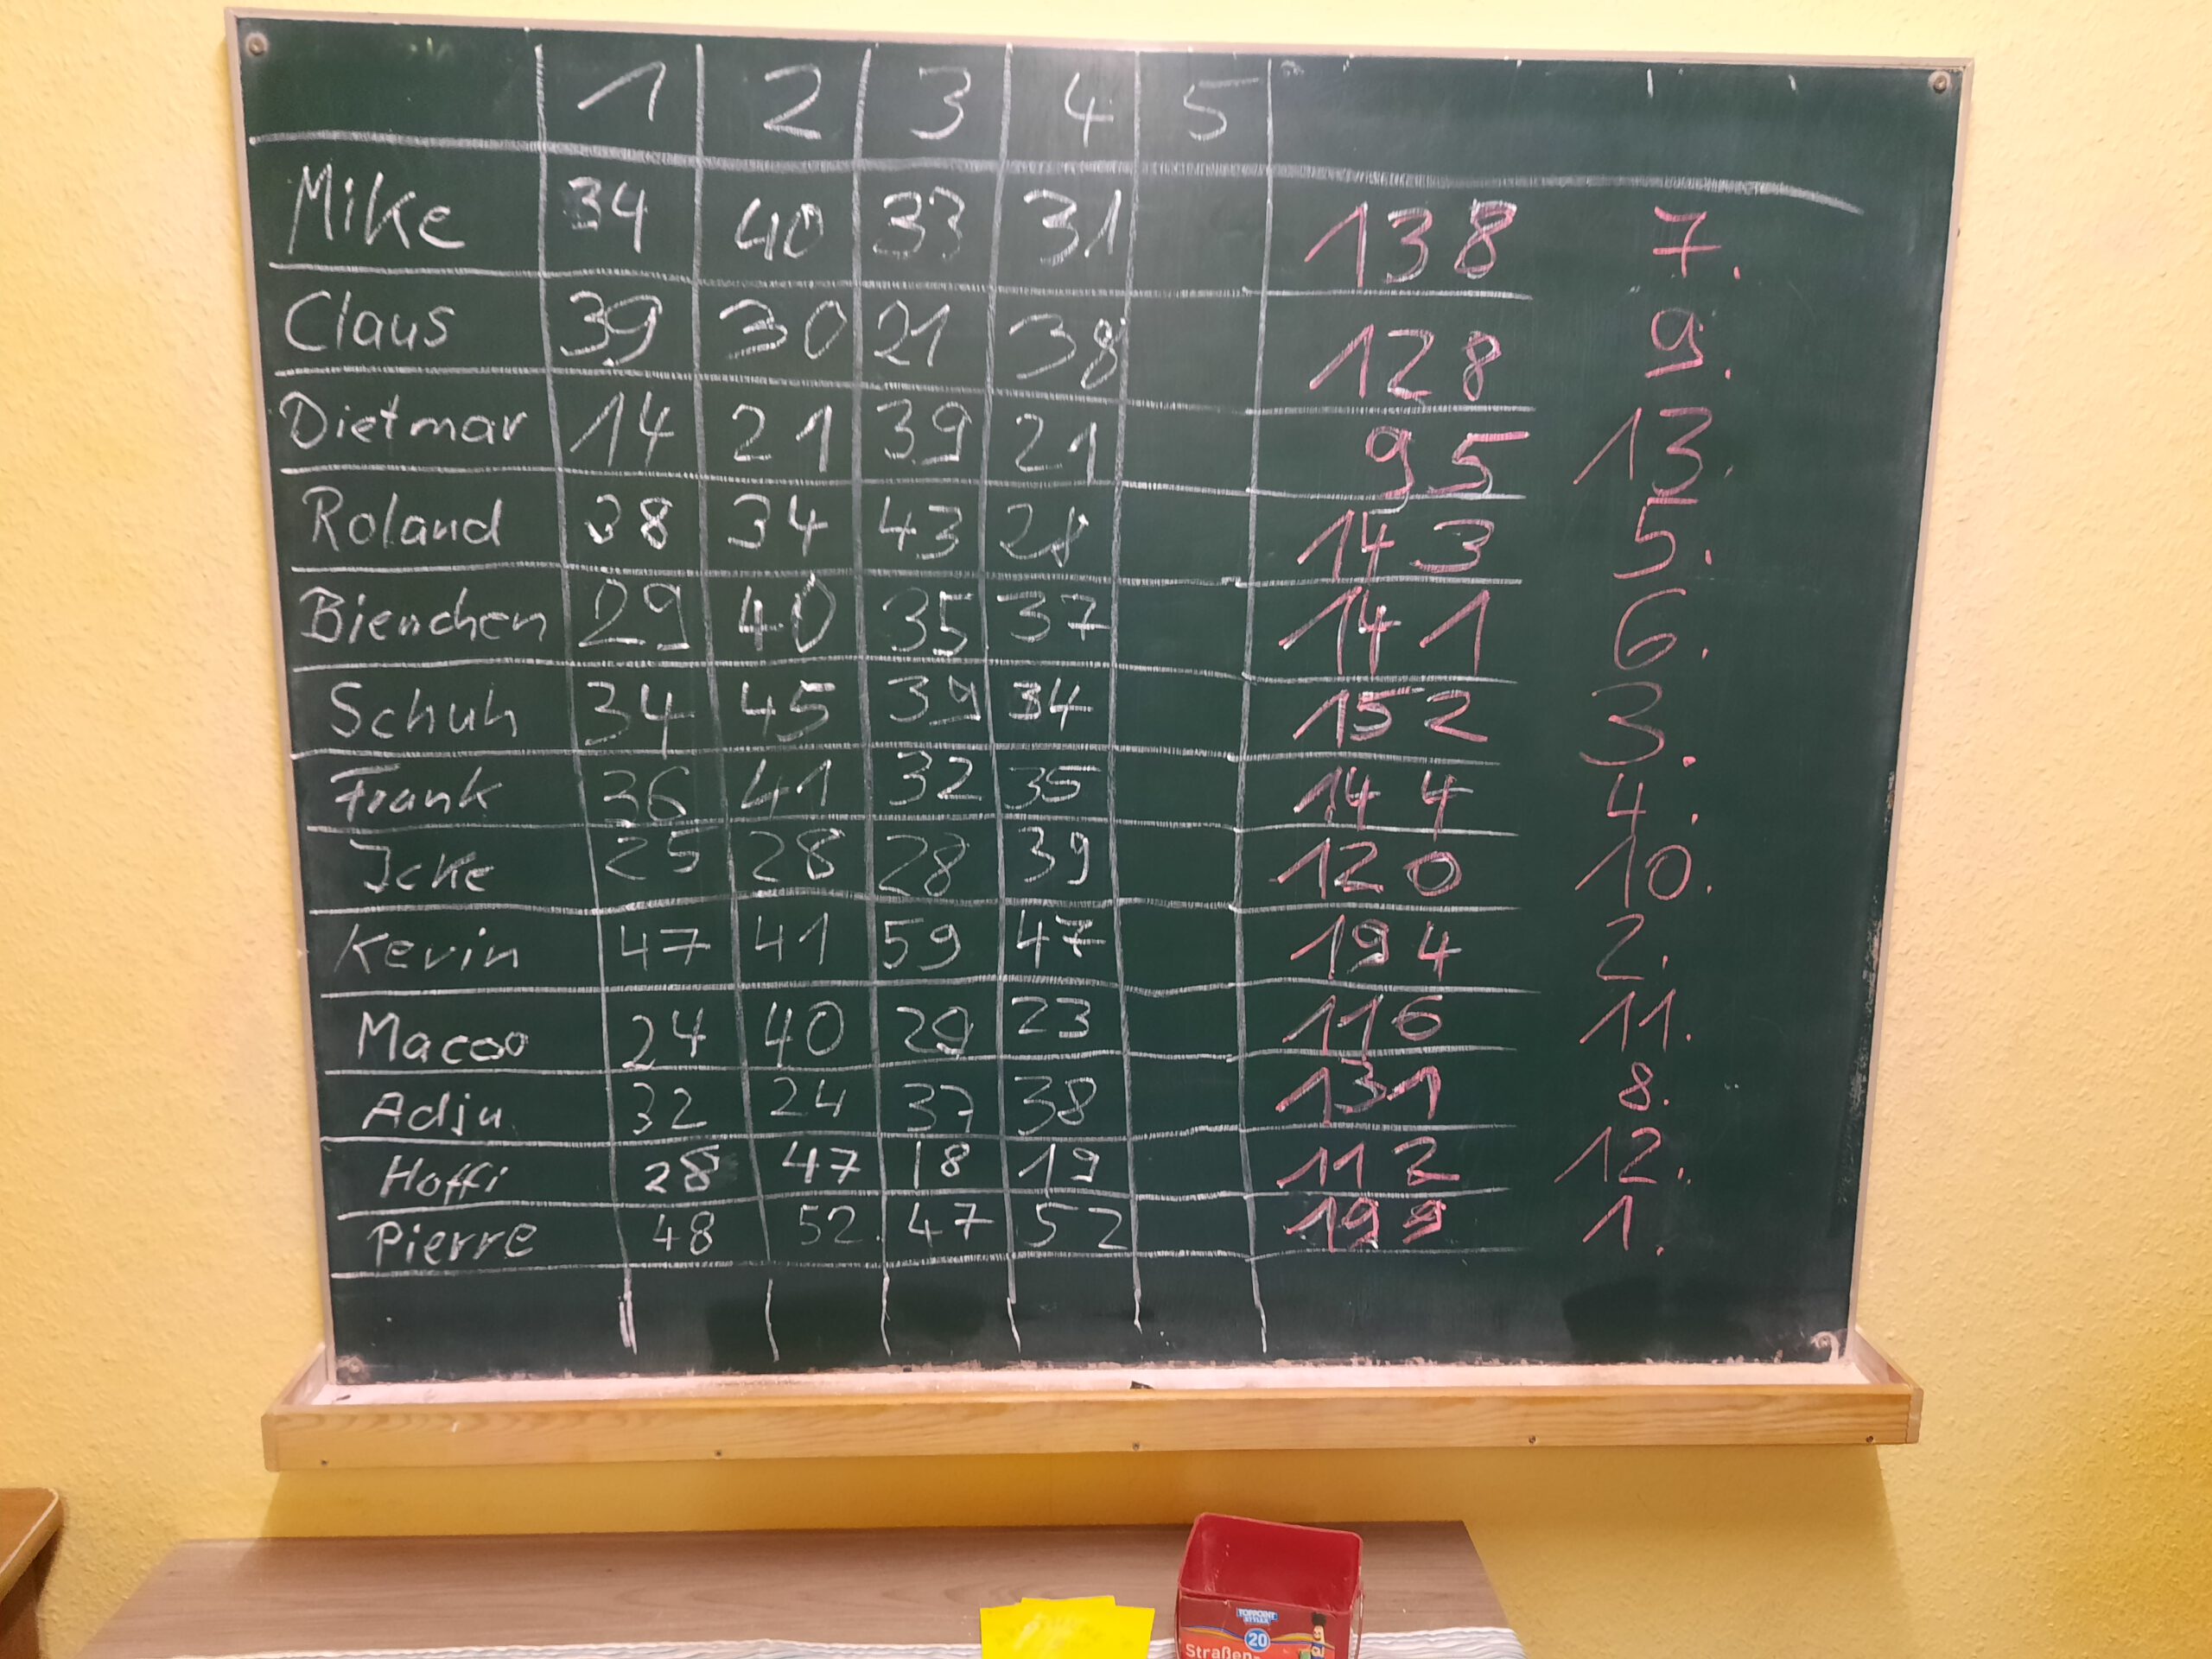 1 2 3 4 5
Mike 34 40 33 31 138 7.
Claus 39 30 21 38 128 9.
Dietmar 14 21 39 21 95 13.
Roland 38 34 43 28 143 5.
Bienchen 29 40 35 37 141 6.
Schuh 34 45 39 34 152 3.
Frank 36 41 32 35 144 4.
Icke 25 28 28 39 120 10.
Kevin 47 41 59 47 194 2.
Macoo 24 40 29 23 116 11.
Adju 32 24 37 38 131 8.
Hoffi 28 47 18 19 112 12.
Pierre 48 52 47 52 199 1.
TOPPOINT
STYLEX
20
Straßen-